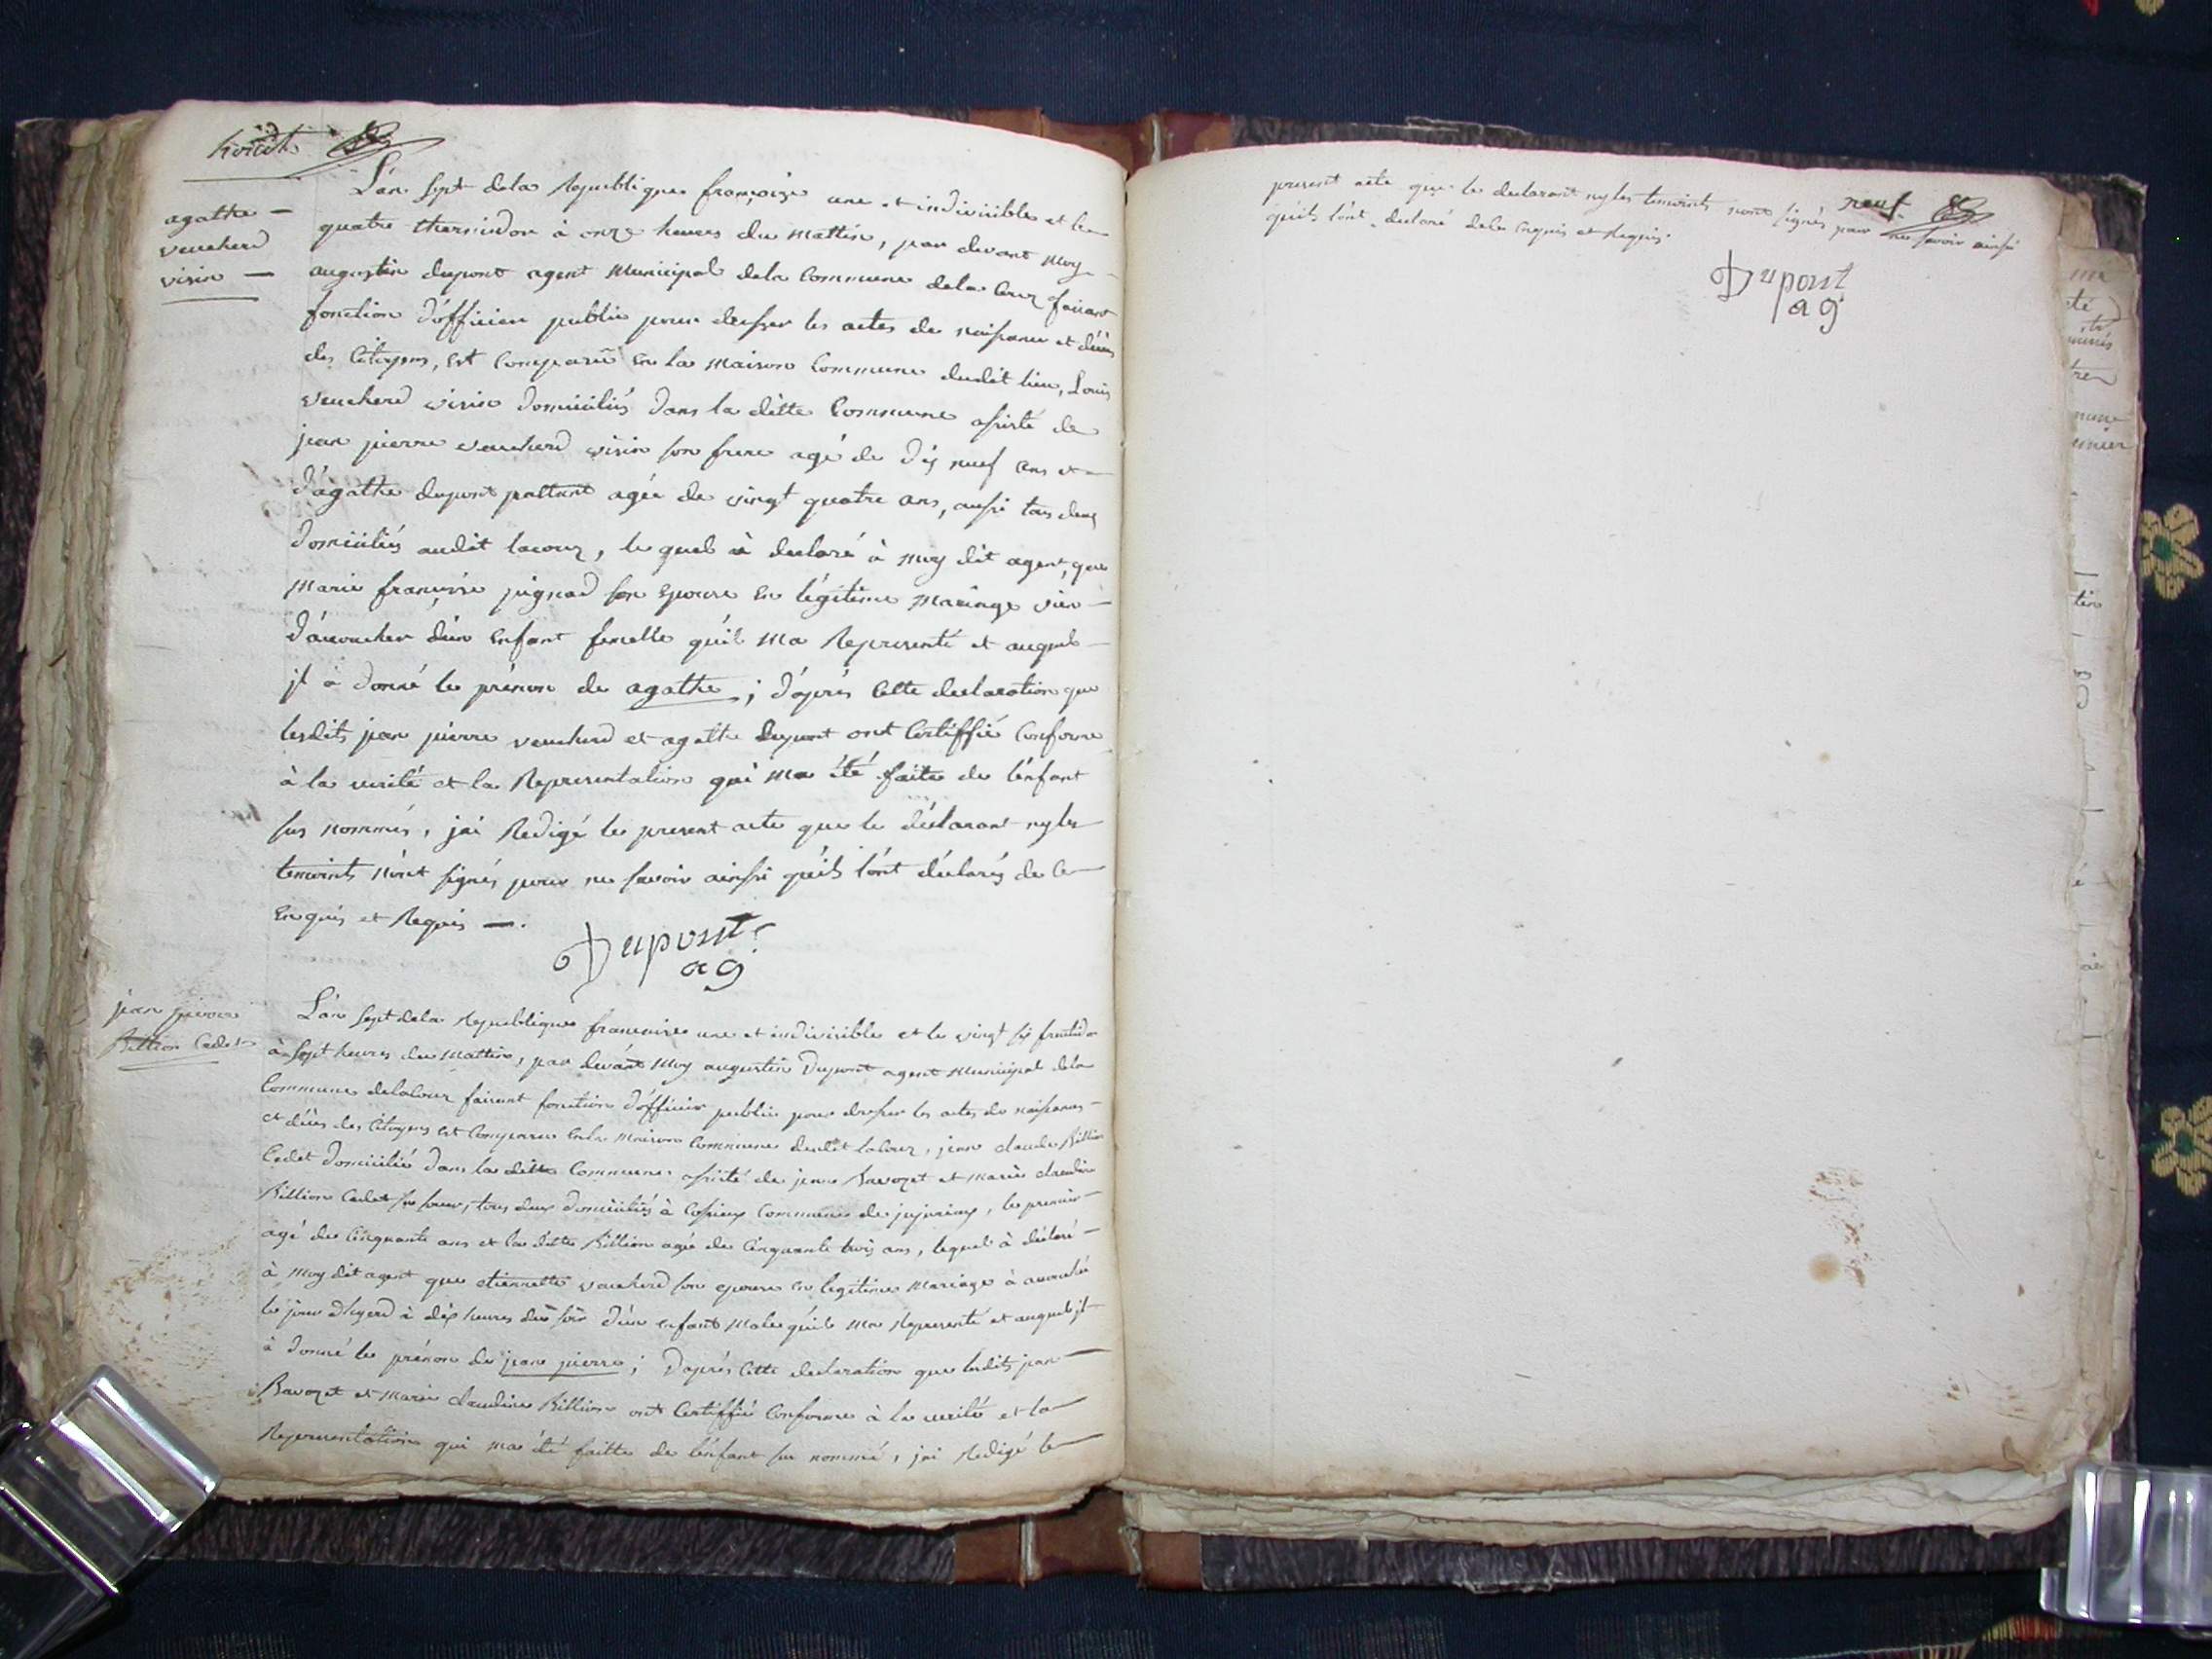 huict
agathe
vaucherd
visin
L'an sept de la Republique françoise une et indivisible et le
quatre thermidor à onze heures du mattin, par devant moy
augustin dupont agent Municipal de la Commune de la Couz faisant
fonction d'officier public pour dresser les actes de naissance et décès
des Citoyens, est Comparu en la Maison Commune dudit lieu, Louis
vaucherd visin domicilié dans la ditte Commune assisté de
jean pierre vaucherd visin son frere agé de dix neuf ans et
d'agathe dupont agée de vingt quatre ans, aussi tous deux
domiciliés audit lacouz, le quel à declaré à moy dit agent, que
Marie françoise pignad son Epouse en légitime Mariage vien
d'accoucher d'un Enfant femelle qu'il ma Representé et auquel
il à donné le prénom de agathe ; d'après cette declaration que
lesdits jean pierre vaucherd et agathe dupont ont Certiffié Conforme
à la verité et la Representation qui ma été faite de l'enfant
sus nommés, jai Redigé le present acte que le déclarant ny les
temoints n'ont signés pour ne savoir ainssi qu'ils l'ont déclarés de ce
Enquis et Requis .
Dupont
ag
jean pierre
Billion Cadet
L'an sept de la Republique francaise une et indivisible et le vingt six fructidor
à sept heures du Mattin, par devant Moy augustin Dupont agent Municipal de la
Commune de lacouz faisant fonction d'officier public pour dresser les actes de naissances
et décès des Citoyens est Comparu en la Maison Commune dudit lacouz, jean claude Billion
Cadet domicilié dans la ditte Commune assisté de jean Savozet et marie claudine
Billion Cadet sa soeur, tous deux domiciliés à Cossieux Commune de jujurieux, le premier
agé de Cinquante ans et la ditte Billion agée de Cinquante trois ans, lequel à déclaré
à Moy dit agent que etiennette vaucherd son epouse en legitime Mariage à accouché
le jour d'hyerd à dix heures du soir d'un enfant Male qu'il ma Representé et auquel il
à donné le prénom de jean pierre ; D'aprés Cette declaration que lesdits jean
Savozet et Marie claudine Billion ont Certiffié Conforme à la verité et la
Representation qui ma été faitte de l'enfant sus nommé, jai Redigé le
neuf
present acte que le declarant ny les temoints n'ont signés pour ne savoir ainssi
qu'ils l'ont declaré de le enquis et Requis.
Dupont
ag